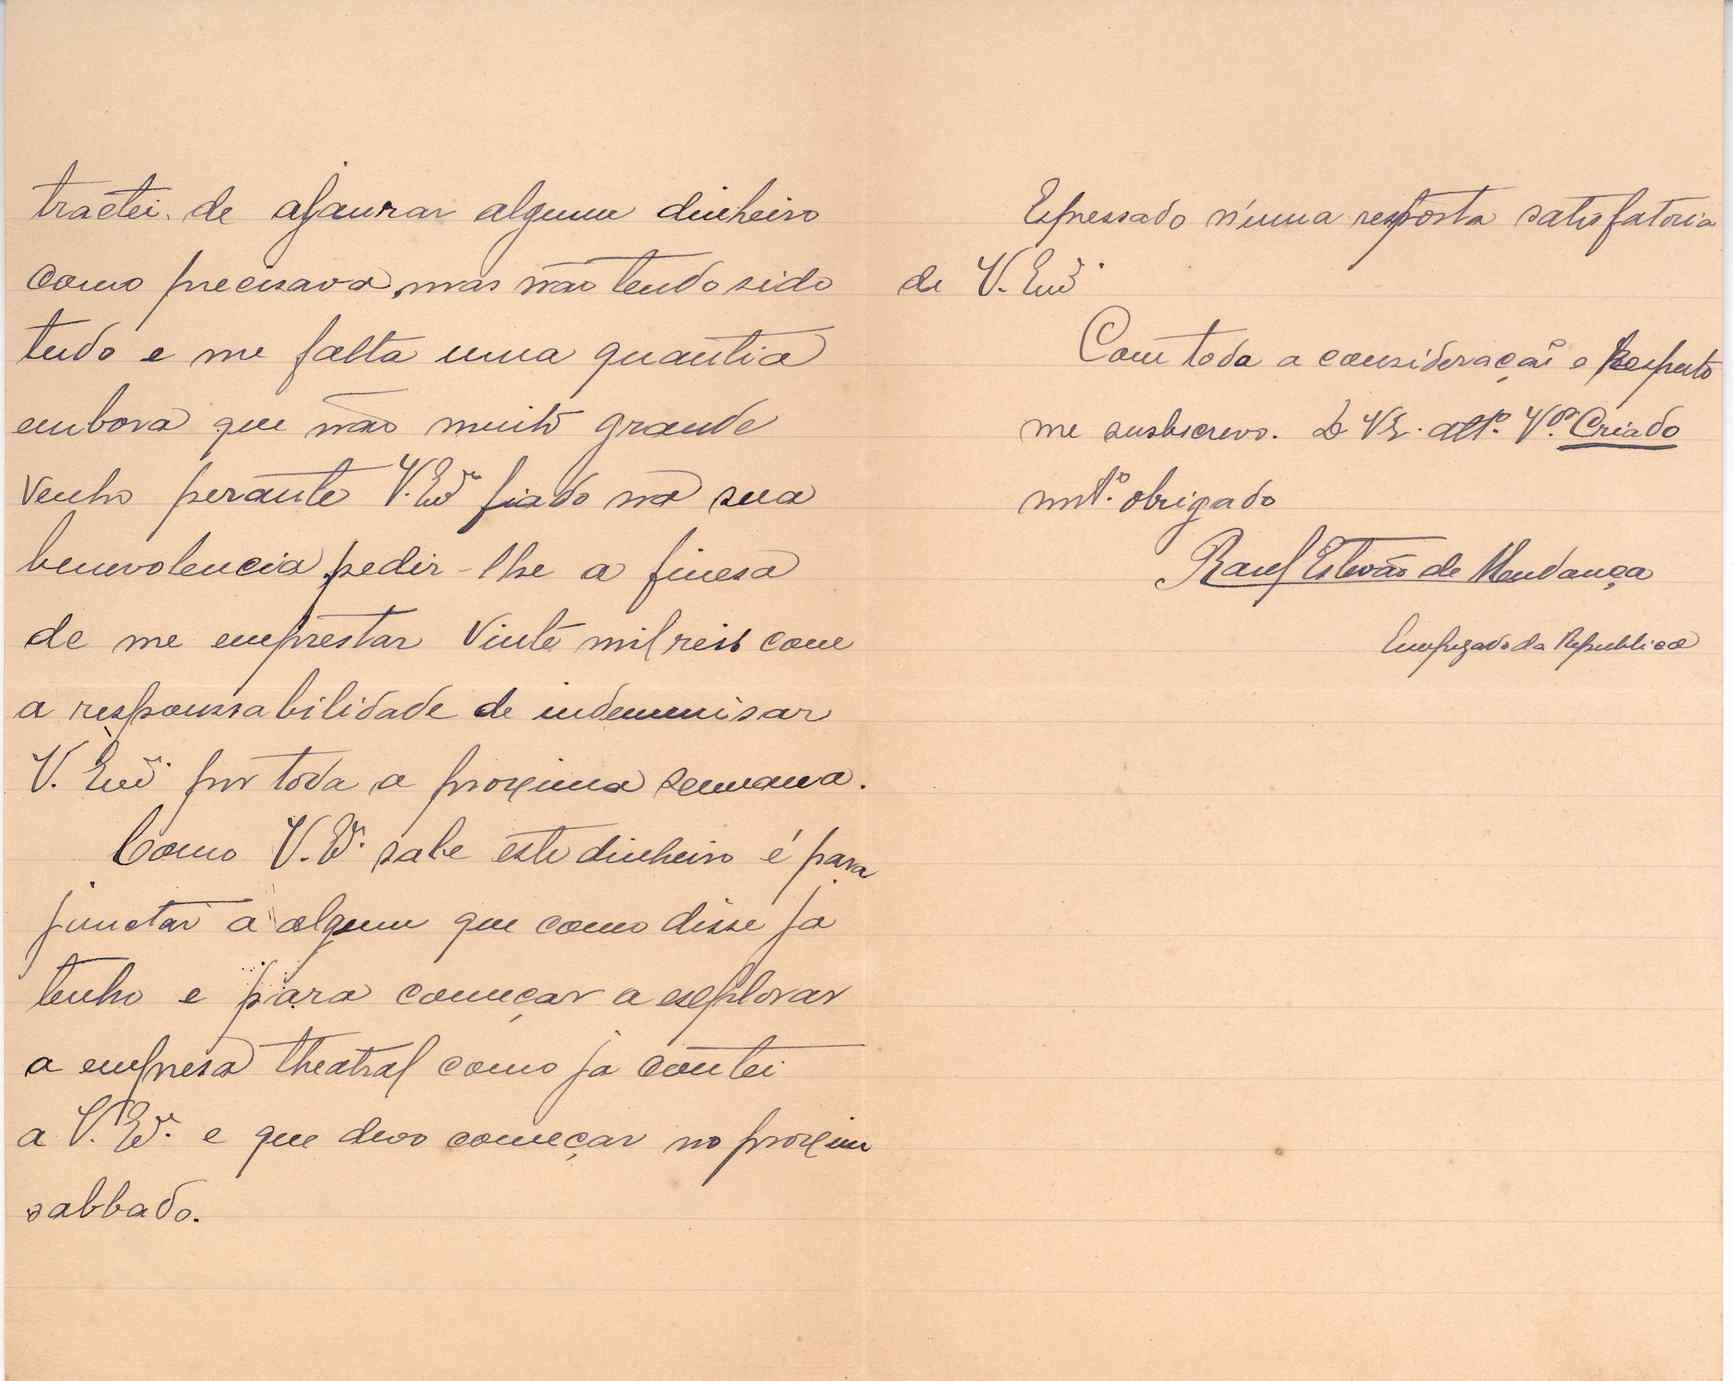 tractei de afanrar algum dinheiro
como precisava, mas não tendo sido
tudo e me falta uma quantia
embora que não muito grande
venho perante V. Exª fiado na sua
benevolencia pedir-lhe a finesa
de me emprestar vinte mil reis com
a responssabilidade de indemnisar
V. Exª por toda a proxima semana.
Como V. Exª sabe este dinheiro é para
junctar a algum que como disse ja
tenho e para começar a explorar
a empresa theatral como ja contei
a V. Exª e que devo começar no proximo
sabbado.
n'uma resposta satisfatoria
de V. Exª
Com toda a consideração e Respeito
me susbscrevo. D V E. attº. Vºʳ. Criado
mtº. obrigado
Raul Estevão de Mendança
Empregado da Republica